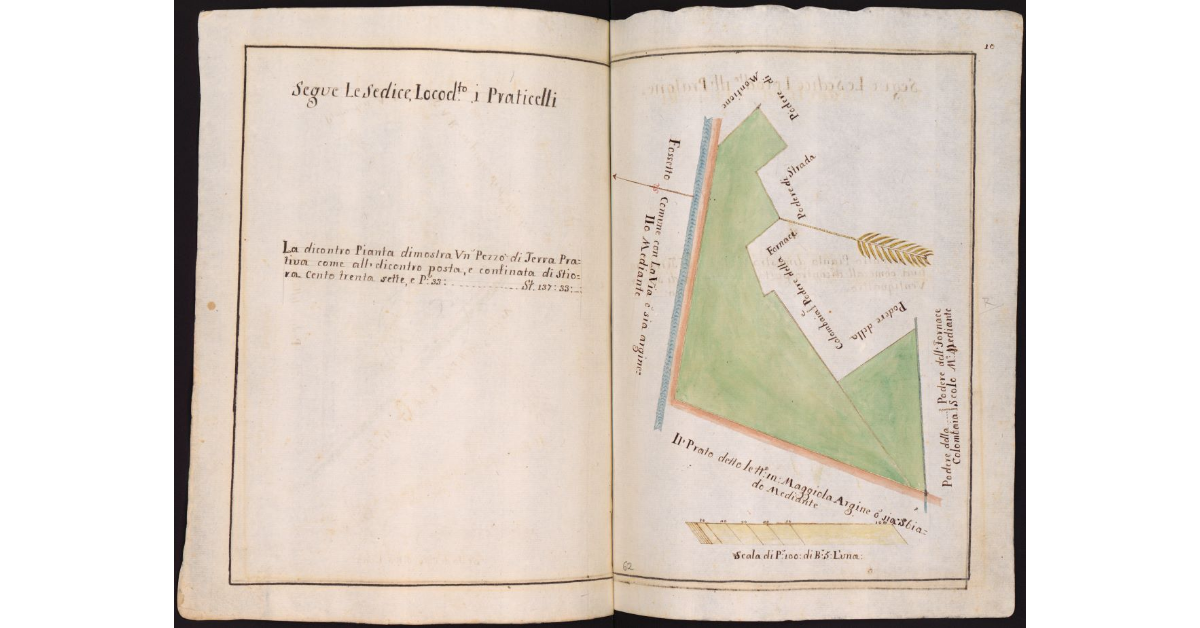 Segue Le Sedice, Locod.to i Praticelli
La dicontro Pianta dimostra Vn' Pezzo di Terra Pra=
tiva come all: dicontro posta, e confinata di Stio=
ra Cento trenta sette, e P. 33: St. 137: 33:
10
Podere di
Montliene
Podere di Strada
Fossetto Comune con La Via o sia argine:
Mediante
Podere della
Fornace
Podere della
Colombaia
Podere della Podere dell: Fornace
Colombaia Scolo M: Mediante
Il Prato detto in Maggiola Argine o
do Mediante
Scala di P. 100: di B. 5. L'una:
62